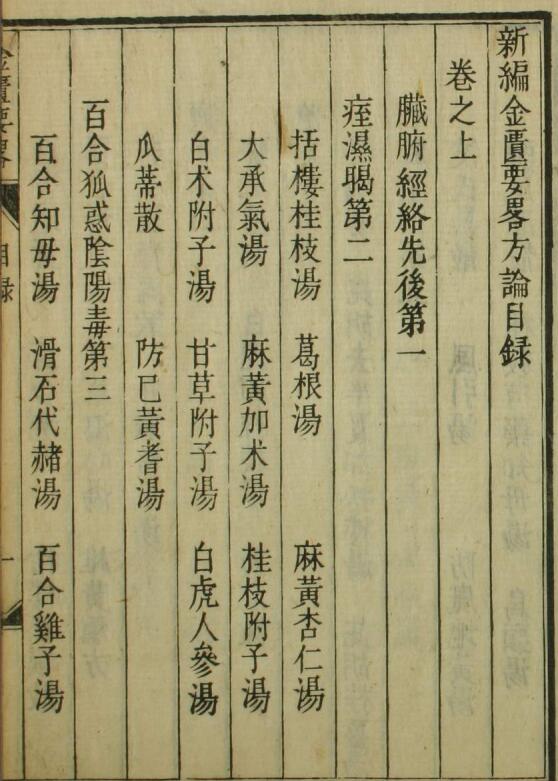 新編金匱要畧方論目録
卷之上
臟腑經絡先後第一
痓濕暍第二
括樓桂枝湯　葛根湯　麻黃杏仁湯
大承氣湯　麻黃加术湯　桂枝附子湯
白术附子湯　甘草附子湯　白虎人參湯
瓜蒂散　防已黃耆湯
百合狐惑陰陽毒第三
百合知母湯　滑石代赭湯　百合雞子湯
金匱要畧
目録
一